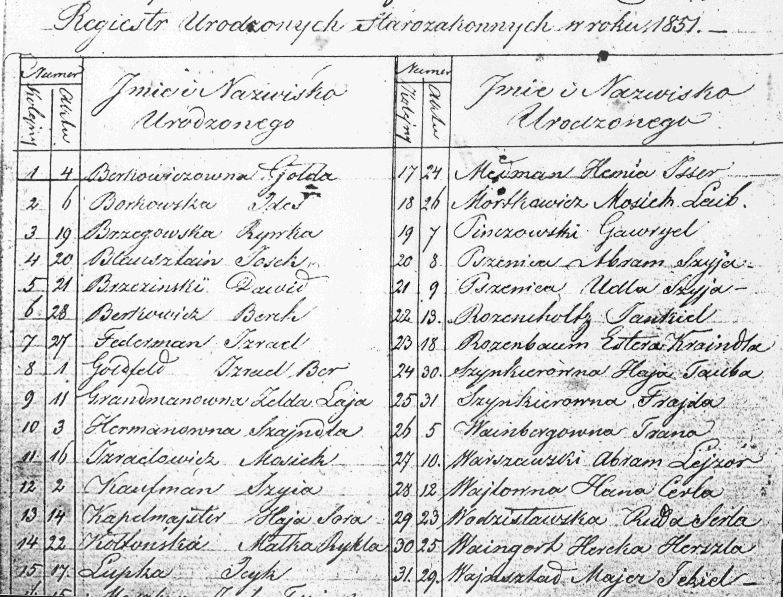 Regiestr Urodzonych Starozakonnych w roku 1851. –
Numer
Kolejny
Aktu
Jmie i Nazwisko
Urodzonego
1 4 Berkowiczowna Gołda
2 6 Borkowska Ides
3 19 Brzegowska Rywka
4 20 Blausztain Josek
5 21 Brzezinski Dawid
6 28 Berkowicz Berek
7 27 Federman Izrael
8 1 Goldfeld Izrael Ber
9 11 Grandmanowna Zelda Łaja
10 3 Hermanowna Szajndla
11 16 Izraelowicz Mosiek
12 2 Kaufman Szyia
13 14 Kapelmajster Haja Sora
14 22 Małka Rykla
15 17 Lupka Icyk
Numer
Kolejny
Aktu
Jmie i Nazwisko
Urodzonego
17 24 Hemia Isser
18 26 Mosiek Leib.
19 7 Pinczowski Gawryel
20 8 Pszenica Abram Szyja –
21 9 Pszenica Udla Szyja –
22 13. Rozencholtz Jankiel
23 18 Rozenbaum Estera Kraindla
24 30. Szynkierowna Haja Tauba
25 31 Szynkierowna Frajda
26 5 Wainbergowna Frana
27 10. Warszawski Abram Lejzor
28 12 Wajlowna Hana Cerla
29 23 Wodzisławska Ruda Serla
30 25 Waingort Hercka Herszla
31. 29. Wajnsztad Majer Jekiel –